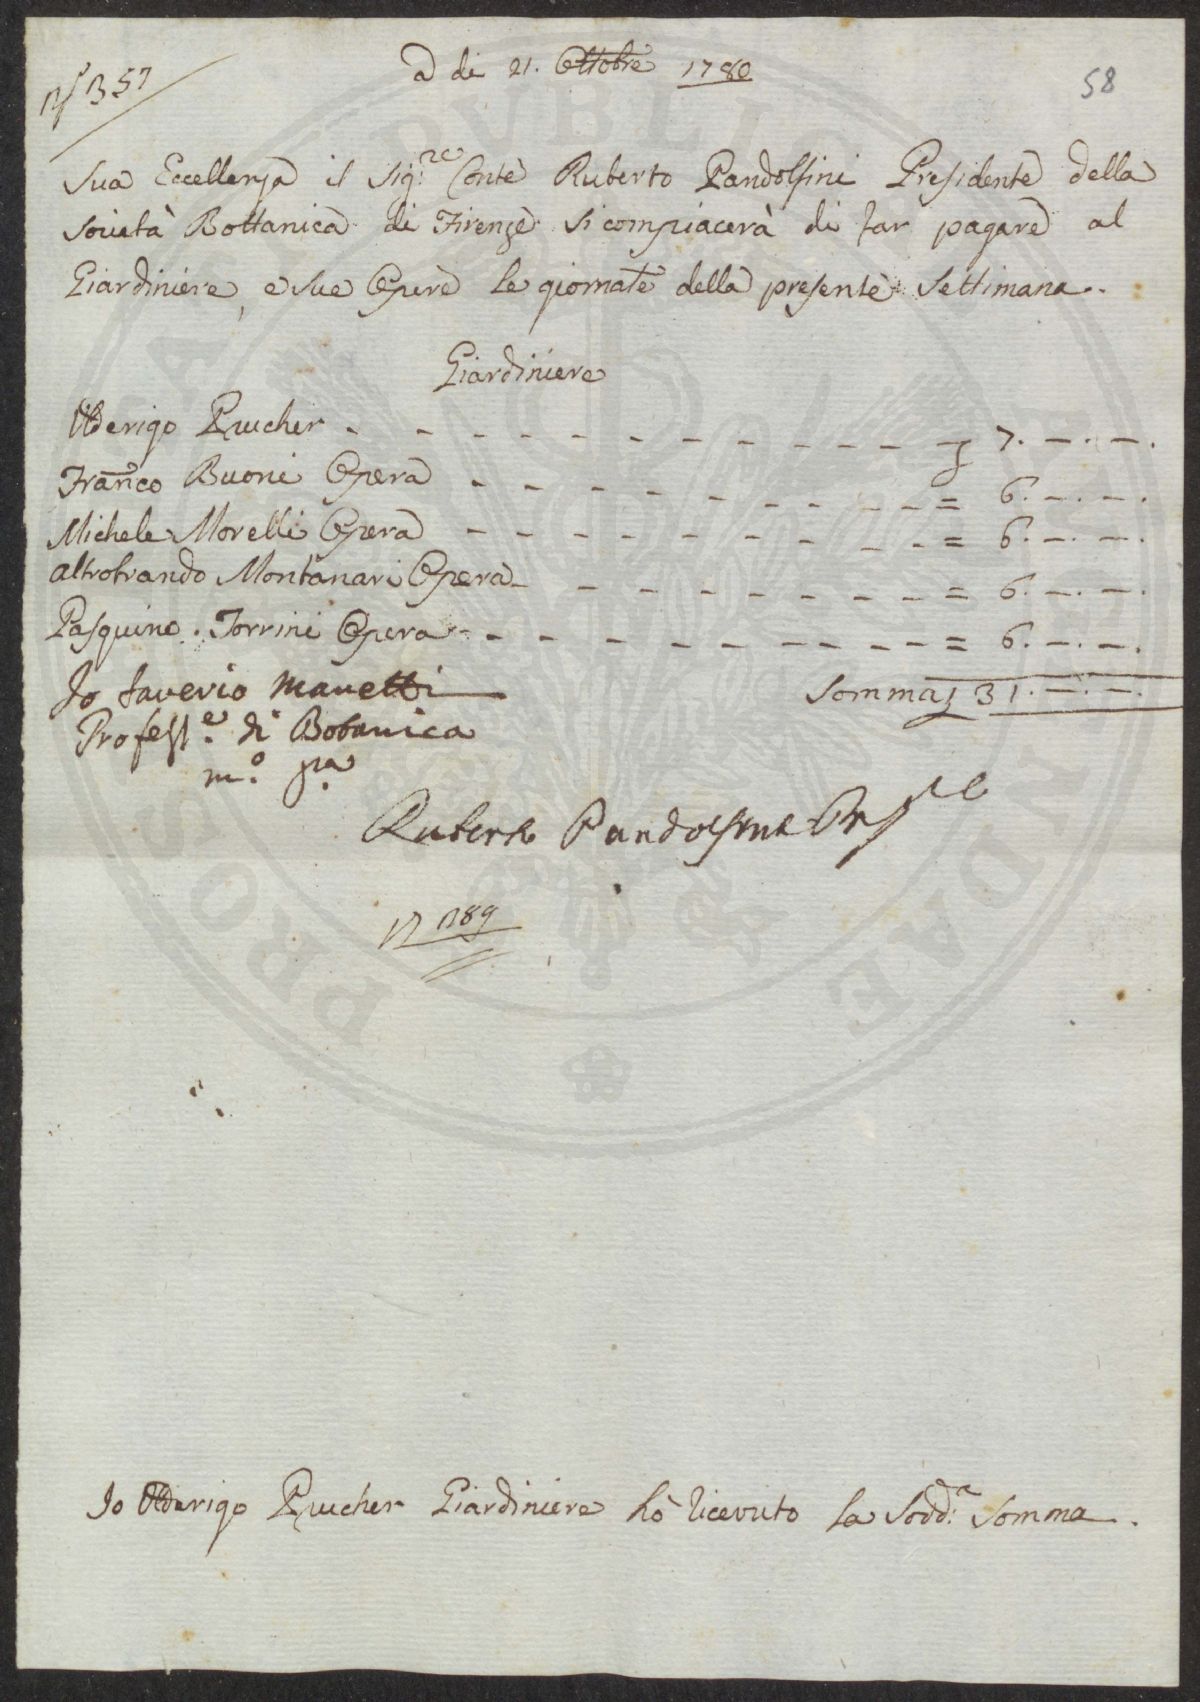 N° 357
A di 21. Ottobre 1780
58
Sua Eccellenza il Sig.re Conte Ruberto Pandolfini Presidente della
Società Bottanica di Firenze si compiacerà di far pagare al
Giardiniere, e sue Opere le giornate della presente Settimana.
Giardiniere
Ulderigo Prucher - - - - - - - - - - £ 7. —. —.
Fran.co Buoni Opera - - - - - - - - - = 6. —. —.
Michele Morelli Opera - - - - - - - - - = 6. —. —.
Altobrando Montanari Opera - - - - - - - = 6. —. —.
Pasquino Torrini Opera - - - - - - - - - = 6. —. —.
Io Saverio Manetti
Somma £ 31. —. —.
Profess.e di Botanica
m.o p.a
Ruberto Pandolfini Pres.te
N 1189
Io Ulderigo Prucher Giardiniere hò ricevuto la Sodd.a Somma.
PRO PUBLICAE